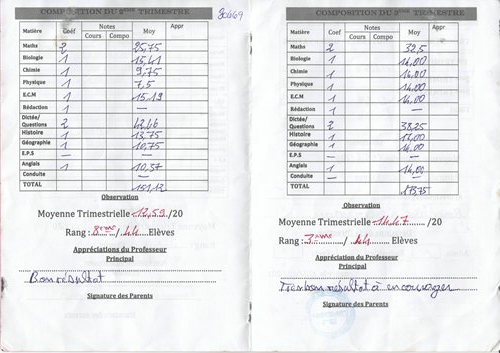 COMPOSITION DU 2ème TRIMESTRE
Matière Coéf Notes Moy Appr
Cours Compo
Maths 2 25,75
Biologie 1 15,41
Chimie 1 9,75
Physique 1 7,5
E.C.M 1 15,19
Rédaction 1 —
Dictée/
Questions 2
Histoire 1 13,75
Géographie 1 10,75
E.P.S — —
Anglais 1 10,37
Conduite —
TOTAL 151,13
Observation
Moyenne Trimestrielle 12,59 /20
Rang : 8ème / 44 Elèves
Appréciations du Professeur
Principal
Bon résultat
Signature des Parents
COMPOSITION DU 3ème TRIMESTRE
Matière Coef Notes Moy Appr
Cours Compo
Maths 2 32,5
Biologie 1 14,00
Chimie 1 16,00
Physique 1 14,00
E.C.M 1 14,00
Rédaction 1 —
Dictée/
Questions 2 38,25
Histoire 1 17,00
Géographie 1 14,00
E.P.S —
Anglais 1 14,00
Conduite —
TOTAL 173,75
Observation
Moyenne Trimestrielle 14,47 /20
Rang : 3ème / 44 Elèves
Appréciations du Professeur
Principal
Tres bon résultat à encourager
Signature des Parents